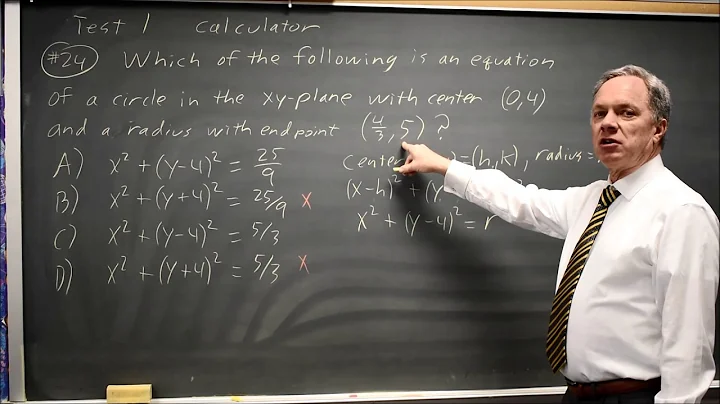 Test 1 calculator
#24 Which of the following is an equation
of a circle in the xy-plane with center (0,4)
and a radius with endpoint (4/3, 5) ?
A) x² + (y-4)² = 25/9
B) x² + (y+4)² = 25/9 x
C) x² + (y-4)² = 5/3
D) x² + (y+4)² = 5/3 x
center = (h,k), radius =
(x-h)² + (y
x² + (y-4)² = r